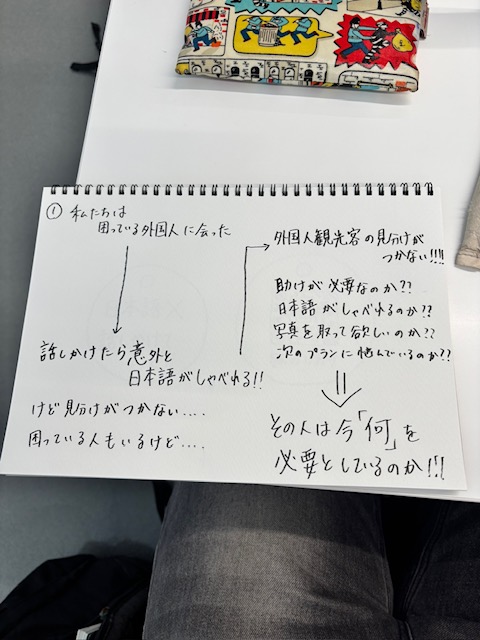 ① 私たちは
困っている外国人に会った
話しかけたら意外と
日本語がしゃべれる!!
けど見分けがつかない....
困っている人もいるけど....
外国人観光客の見分けが
つかない!!!!
助けが必要なのか??
日本語がしゃべれるのか??
写真を取って欲しいのか??
次のプランに悩んでいるのか??
その人は今「何」を
必要としているのか!!!